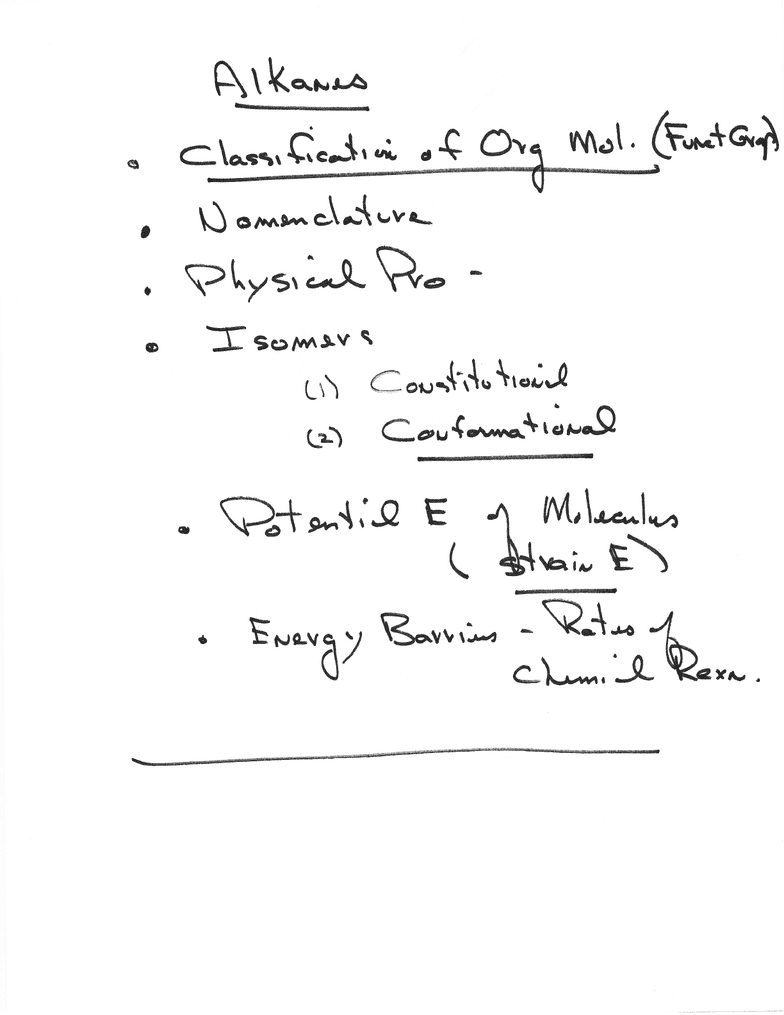 Alkanes
• Classification of Org Mol. (Funct Grops)
• Nomenclature
• Physical Pro -
• Isomers
(1) Constitutional
(2) Conformational
• Potential E of Molecules
( Strain E )
• Energy Barriers - Rates of
Chemical Rexn.